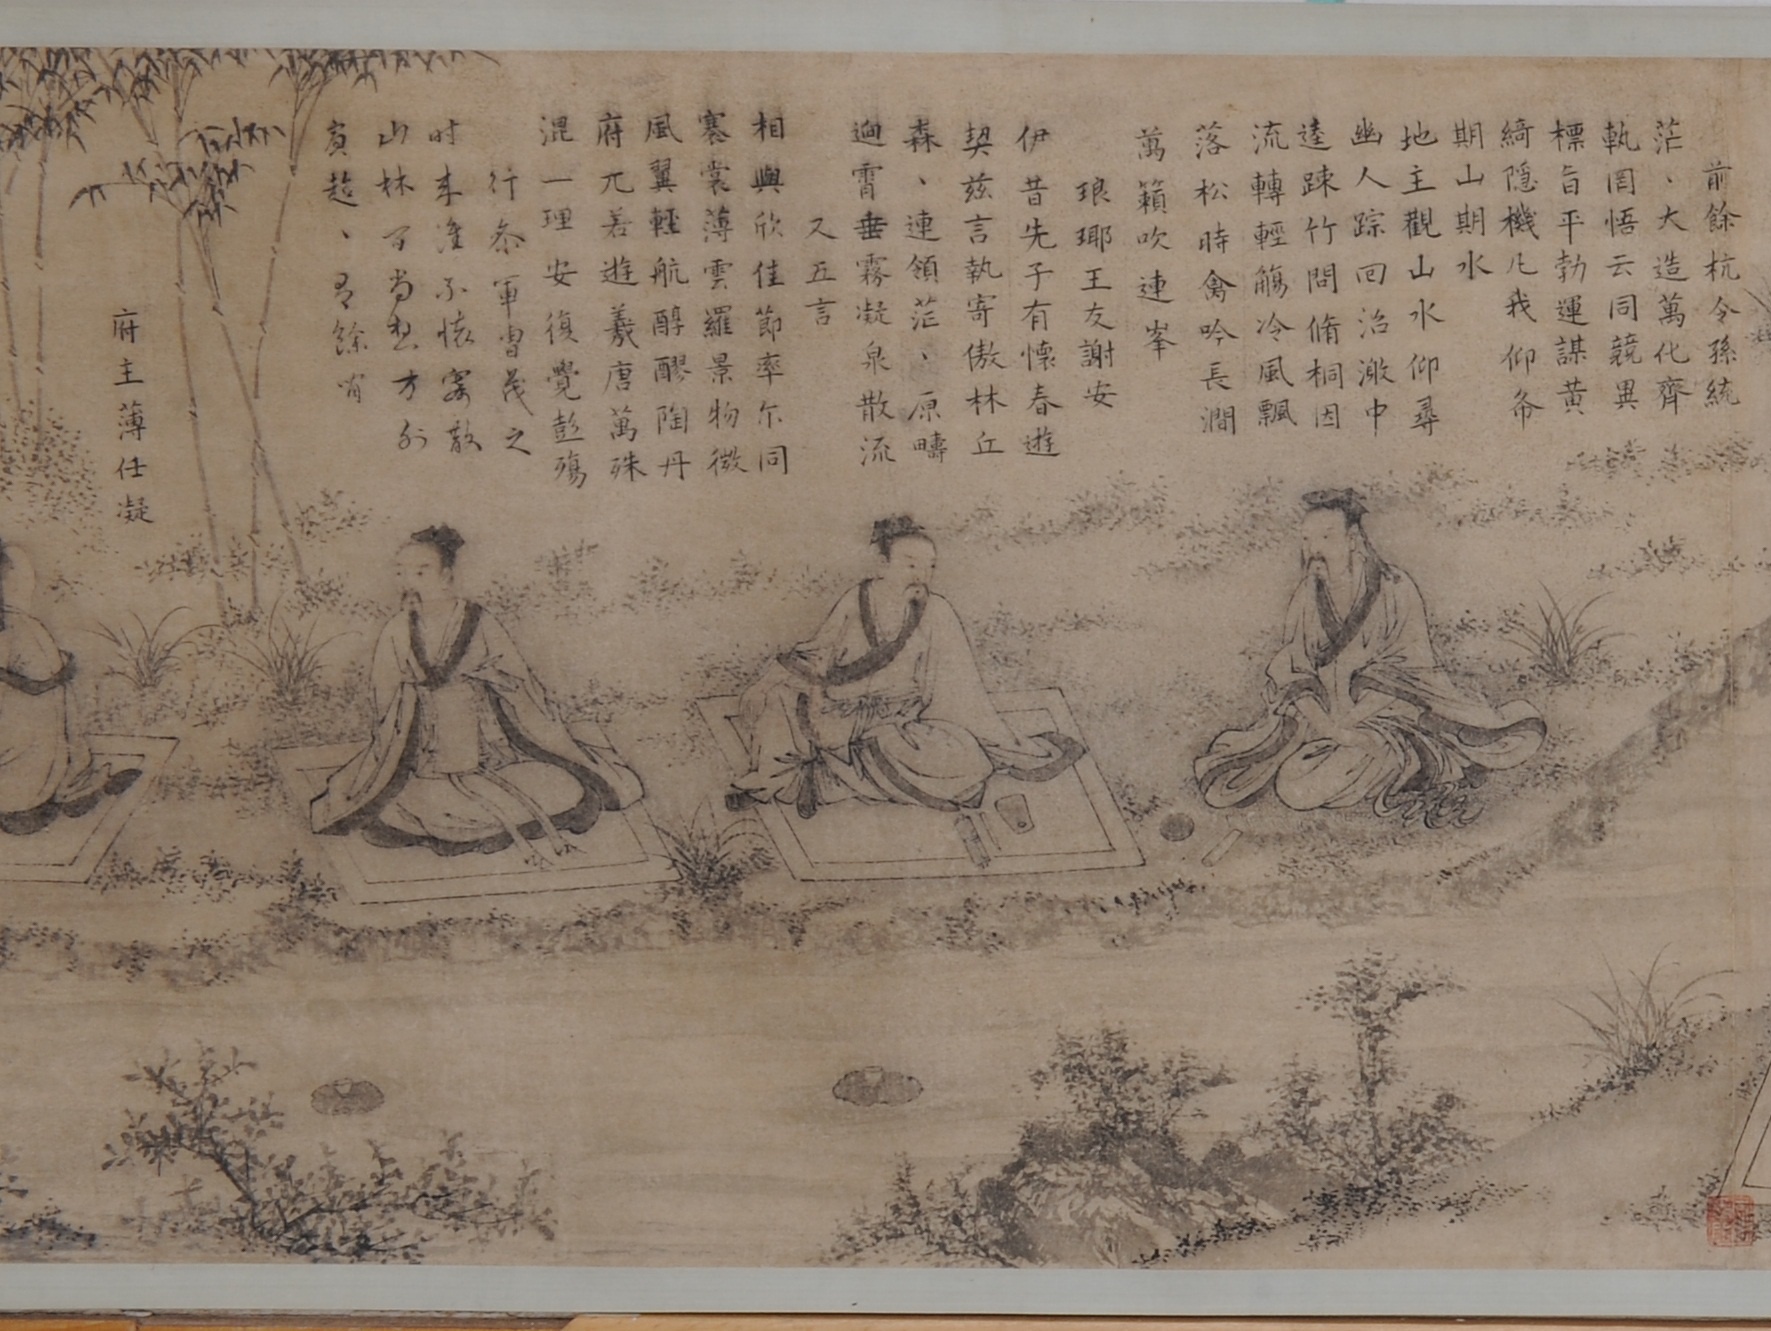 前餘杭令孫統
茫、大造萬化齊
軌罔悟云同競異
標旨平勃運謀黃
綺隠機凡我仰希
期山期水
地主觀山水仰尋
幽人踪回沼激中
逵踈竹間脩桐因
流轉輕觴冷風飄
落松時禽吟長澗
萬籟吹連峯
琅瑯王友謝安
伊昔先子有懷春遊
契兹言執寄傲林丘
森、連領茫、原疇
逈霄垂霧凝泉散流
又五言
相與欣佳節率尓同
褰裳薄雲羅景物微
風翼輕航醇醪陶丹
府兀若遊羲唐萬殊
混一理安復覺彭殤
行參軍曹茂之
时来誰不懷寄散
山林間尚想方外
賓超、有餘
府主薄任凝